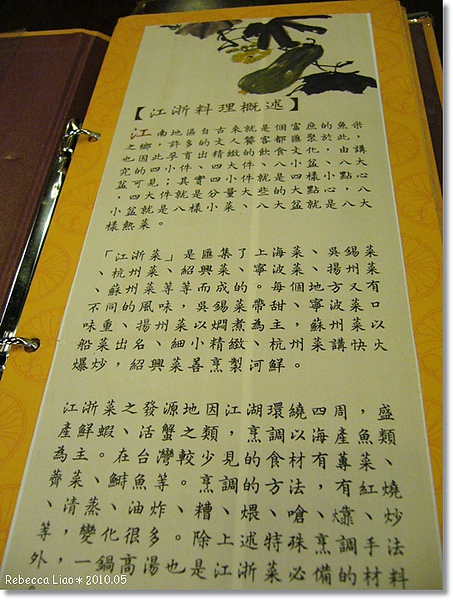 【江浙料理概述】
江南地區自古來就是個富庶的魚米
之鄉，許多的文人饕客都匯聚於此，
也因此孕育出精緻的飲食文化，由講
究的四小件、四大件、八小盆、八大
盆可見；其實四小件就是四樣小點心
，四大件就是分量大些的大點心，八
小盆就是八樣小菜、八大盆就是八大
樣熱菜。
「江浙菜」是匯集了上海菜、吳錫菜
、杭州菜、紹興菜、寧波菜、揚州菜
、蘇州菜等等而成的。每個地方又有
不同的風味，吳錫菜帶甜、寧波菜口
味重、揚州菜以燜煮為主，蘇州菜以
船菜出名、細小精緻、杭州菜講快火
爆炒，紹興菜善烹製河鮮。
江浙菜之發源地因江湖環繞四周，盛
產鮮蝦、活蟹之類，烹調以海產魚類、
為主。在台灣較少見的食材有蓴菜、
薺菜、鰣魚等。烹調的方法，有紅燒
、清蒸、油炸、糟、煨、嗆、㸆、炒
等，變化很多。除上述特殊烹調手法
外，一鍋高湯也是江浙菜必備的材料
Rebecca Liao＊2010.05